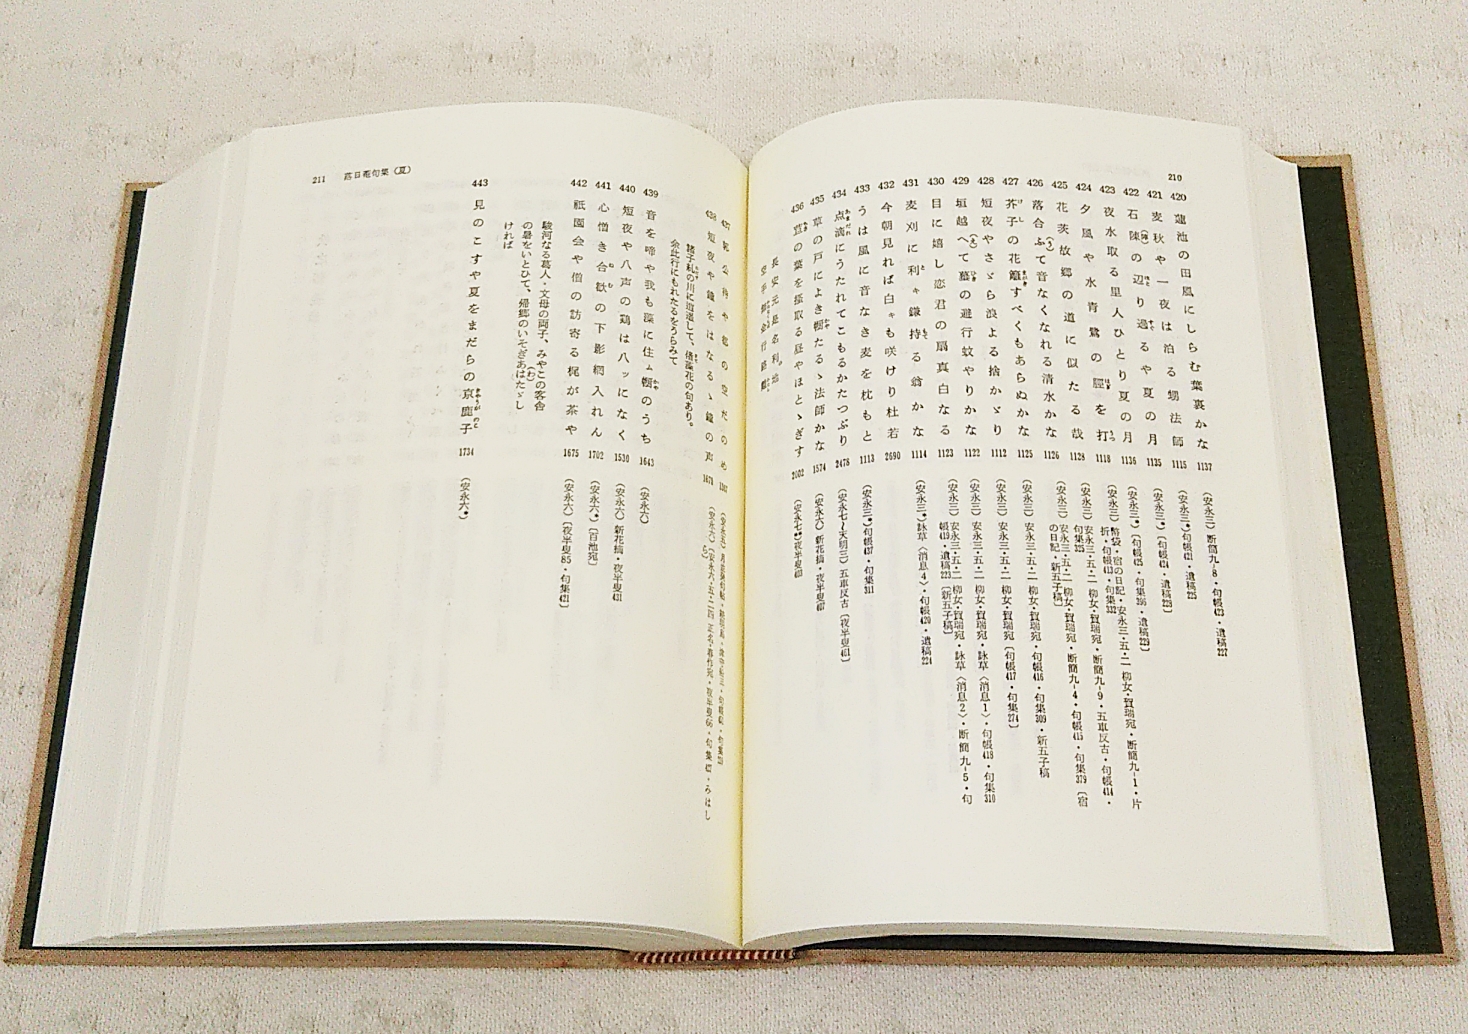 210
420 蓮池の田風にしらむ葉裏かな 1137 （安永三）断簡九-8・句帳423・遺稿227
421 麦秋や一夜は泊る甥法師 1115 （安永三*）句帳421・遺稿225
422 石陣の辺り過るや夏の月 1135 （安永三*）〔句帳424・遺稿228〕
423 夜水取る里人ひとり夏の月 1136 （安永三*）〔句帳425・句集396・遺稿229〕
424 夕風や水青鷺の脛を打 1118 （安永三）幣袋・宿の日記・安永三・五・二 柳女・賀瑞宛・断簡九-1・片
折・句帳413・句集332
425 花茨故郷の道に似たる哉 1128 （安永三）安永三・五・二 柳女・賀瑞宛・断簡九-9・五車反古・句帳414・
句集325
426 落合ふて音なくなれる清水かな 1126 （安永三）安永三・五・二 柳女・賀瑞宛・断簡九-4・句帳415・句集379〔宿
の日記・新五子稿〕
427 芥子の花籬すべくもあらぬかな 1125 （安永三）安永三・五・二 柳女・賀瑞宛・句帳416・句集309・新五子稿
428 短夜やさゞら浪よる捨かゞり 1112 （安永三）安永三・五・二 柳女・賀瑞宛〔句帳417・句集274〕
429 垣越へて蟇の避行蚊やりかな 1122 （安永三）安永三・五・二 柳女・賀瑞宛・詠草〈消息1〉・句帳418・句集310
430 目に嬉し恋君の扇真白なる 1123 （安永三）安永三・五・二 柳女・賀瑞宛・詠草〈消息2〉・断簡九-5・句
帳419・遺稿223〔新五子稿〕
431 麦刈に利キ鎌持る翁かな 1114 （安永三*）詠草〈消息4〉・句帳420・遺稿224
432 今朝見れば白キも咲けり杜若 2690
433 うは風に音なき麦を枕もと 1113 （安永三*）句帳437・句集311
434 点滴にうたれてこもるかたつぶり 2478 （安永七〜天明三）五車反古〔夜半叟401〕
435 草の戸によき蚊帳たるゝ法師かな 1574 （安永六）新花摘・夜半叟
436 の葉を採取る昼やほとゝぎす 2002 （安永七*）夜半叟
長安元是名利地
437 の空だのめ
438 短夜や鐘をはなるゝ鐘の声 （安永六）
諸子糺の川に逍遥して、倦藻花の句あり。
会此行にもれたるをうらみて
439 音を啼や我も藻に住ム蟵のうち 1643 （安永六）
440 短夜や八声の鶏は八ッになく 1530 （安永六）新花摘・夜半叟431
441 心憎き合歓の下影網入れん 1702 （安永六*）〔百池宛〕
442 祇園会や僧の訪寄る梶が茶や 1675 （安永六）〔夜半叟85・句集421〕
駿河なる葛人・文母の両子、みやこの客舎
の暑をいとひて、帰郷のいそぎあはたゞし
ければ
443 見のこすや夏をまだらの京鹿子 1734 （安永六*）
落日菴句集〈夏〉
211